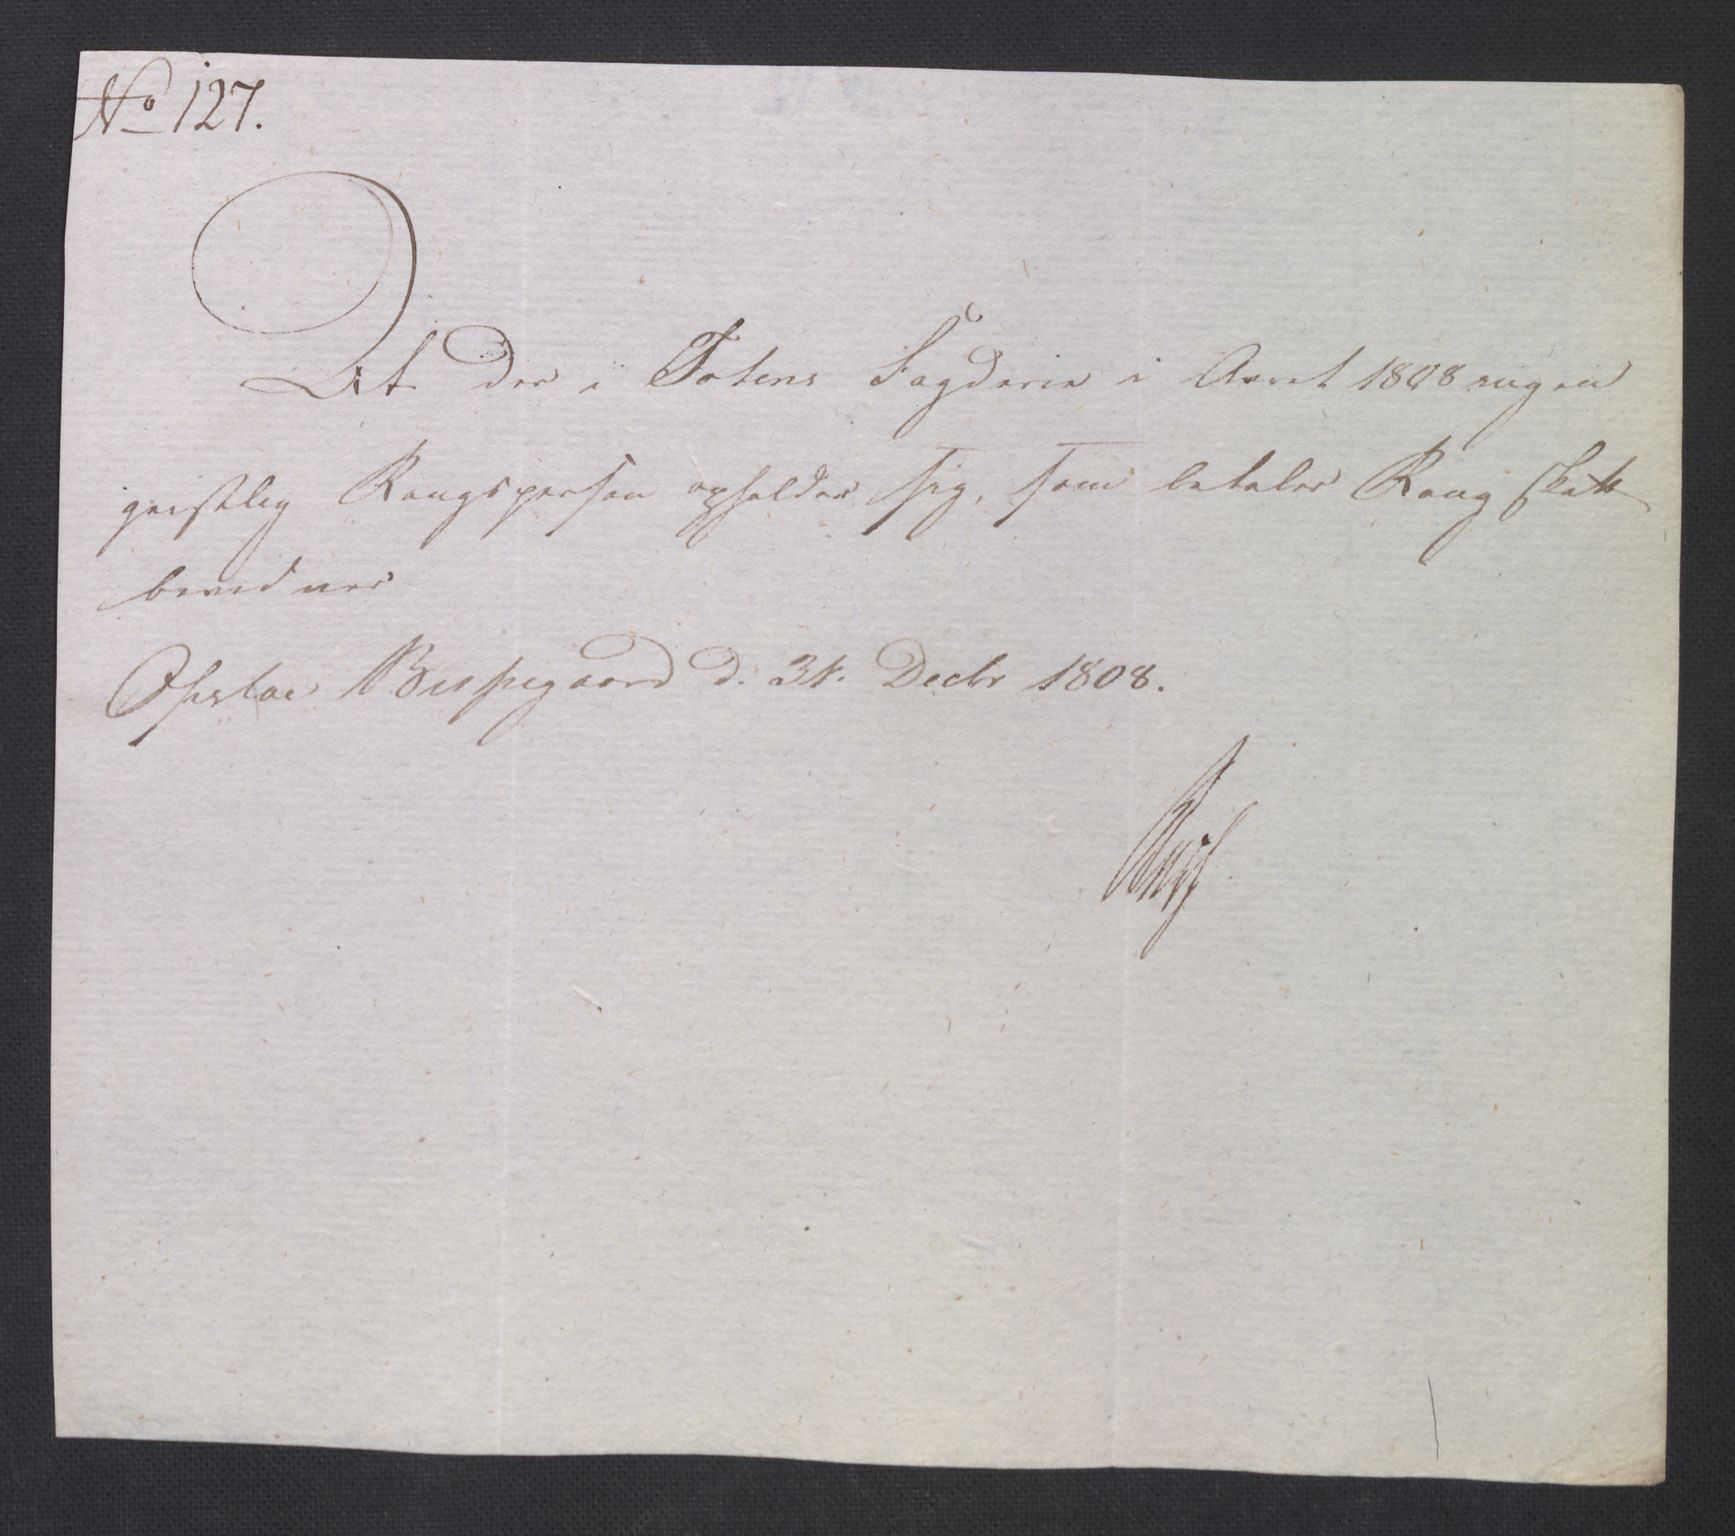 No 127.
At der i Totens Fogderie i Aaret 1808 ingen
geistlig Rangsperson opholder sig, som betaler Rang Skatt
bevidner
Opsloe Bispegaard d. 31. Decbr 1808.
Bech